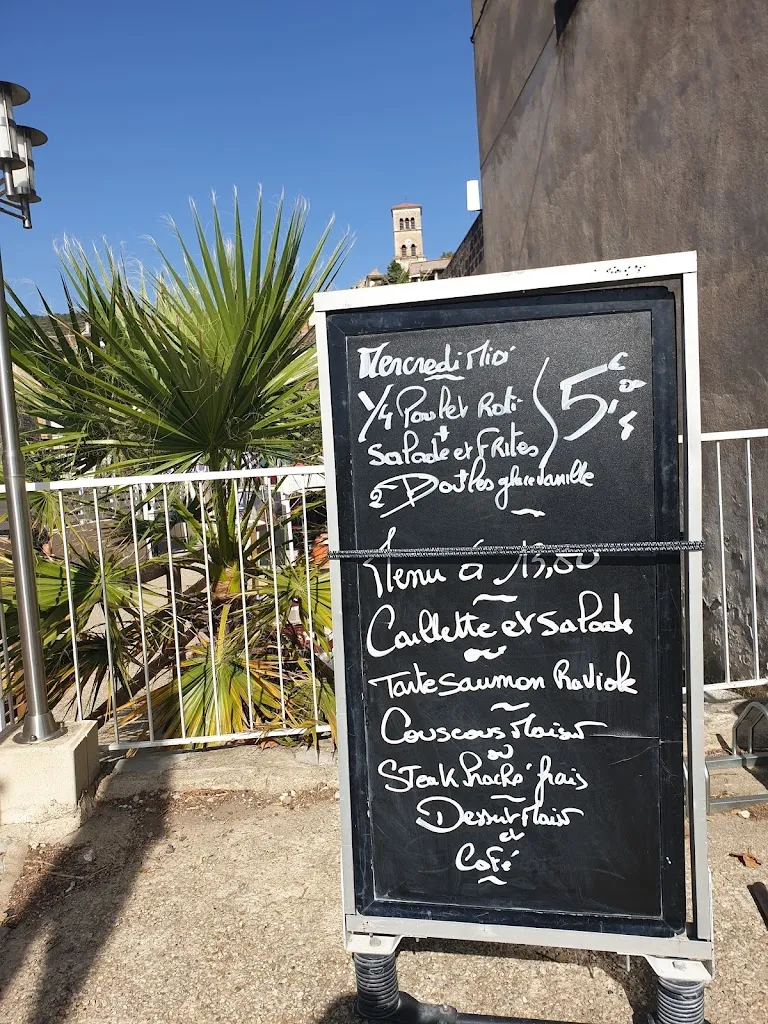 Mercredi Midi
1/4 Poulet Roti
+
Salade et Frites
5,€
+
2 Boules glace vanille
Menu à 13,00
Caillette et Salade
ou
Tarte Saumon Raviole
Couscous Maison
ou
Steak haché frais
Dessert Maison
et
Café